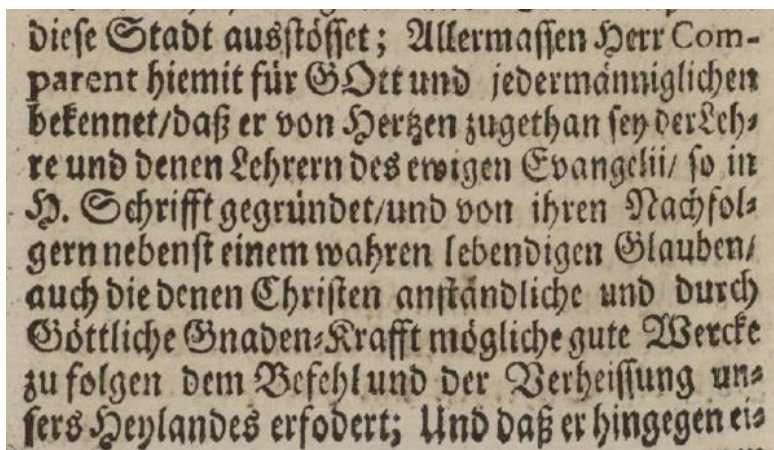 diese Stadt ausstösset; Allermassen Herr Com-
parent hiemit für GOtt und jedermänniglichen
bekennet/daß er von Hertzen zugethan sey der Leh-
re und denen Lehrern des ewigen Evangelii/ so in
H. Schrifft gegründet/und von ihren Nachfol-
gern nebenst einem wahren lebendigen Glauben/
auch die denen Christen anständliche und durch
Göttliche Gnaden-Krafft mögliche gute Wercke
zu folgen dem Befehl und der Verheissung un-
sers Heylandes erfodert; Und daß er hingegen ei-